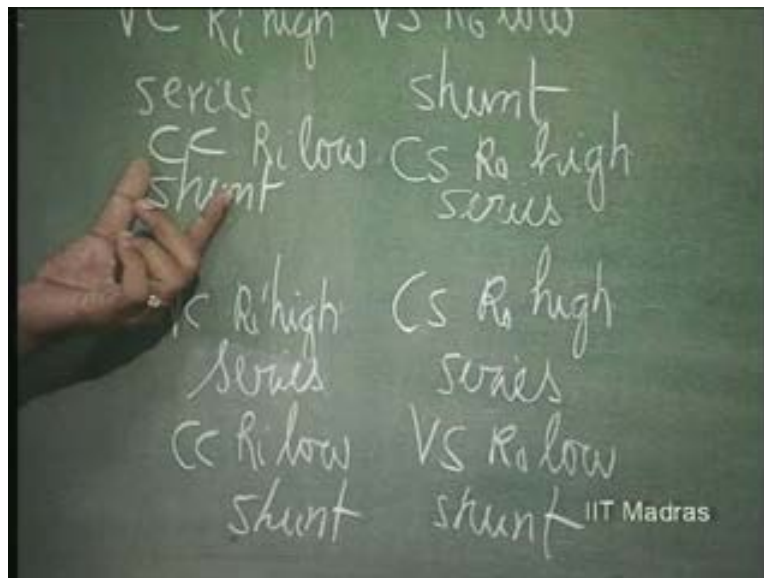 VC Ri high VS Ro low
series shunt
CC Ri low CS Ro high
shunt series
C Ri high CS Ro high
series series
CC Ri low VS Ro low
shunt shunt
IIT Madras